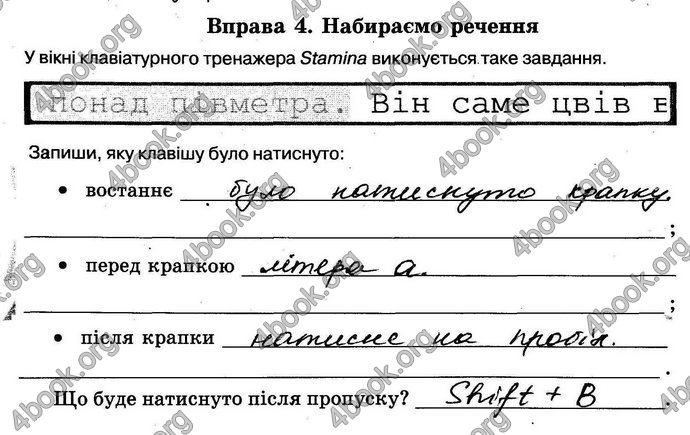 Вправа 4. Набираємо речення
У вікні клавіатурного тренажера Stamina виконується таке завдання.
понад півметра. Він саме цвів в
Запиши, яку клавішу було натиснуто:
• востаннє було натиснуто крапку.
;
• перед крапкою літера а.
;
• після крапки натисне на пробіл.
.
Що буде натиснуто після пропуску? Shift + В.
4book.org